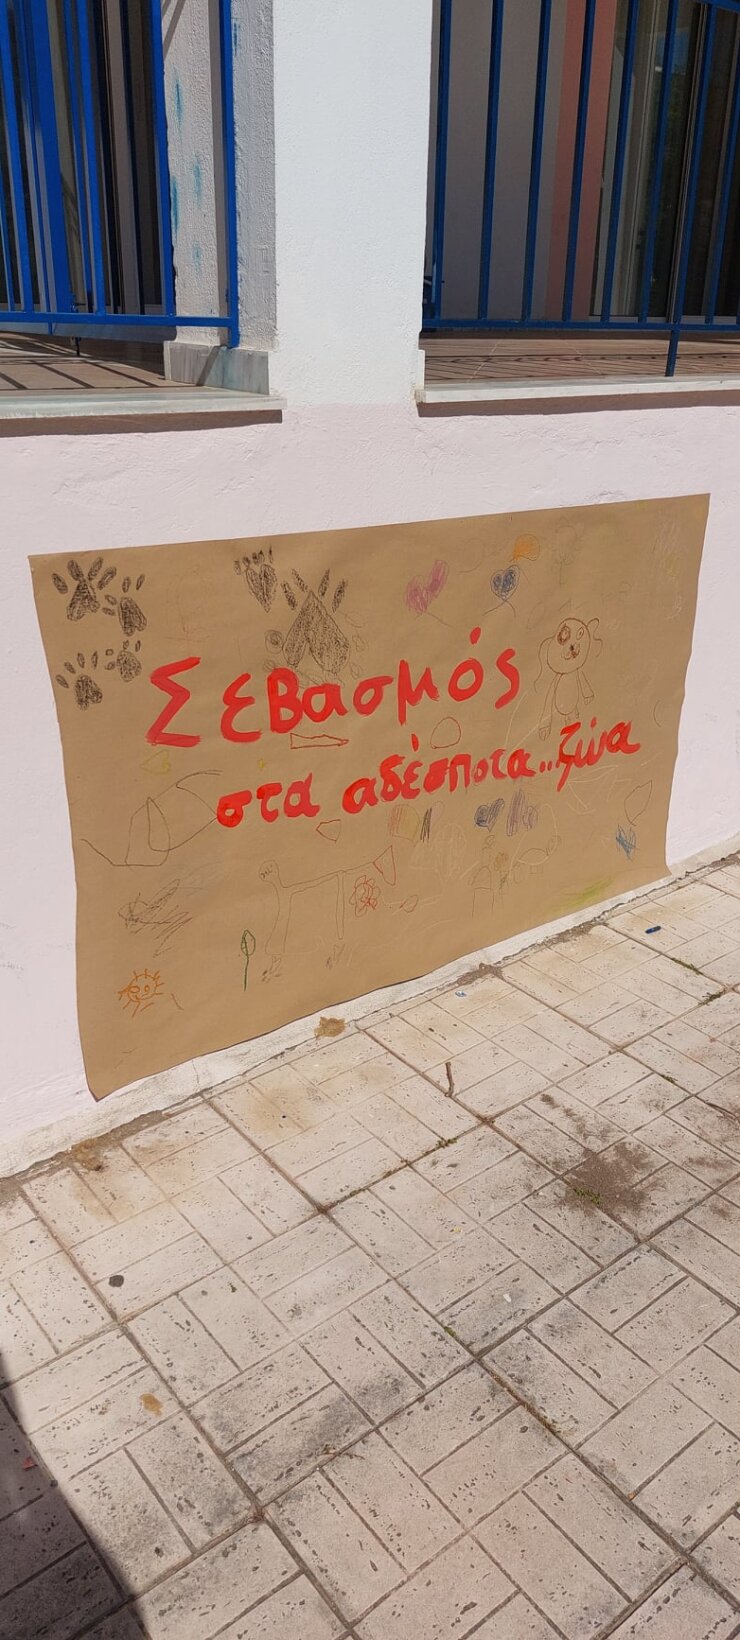 Σεβασμός
στα αδέσποτα..ζώα